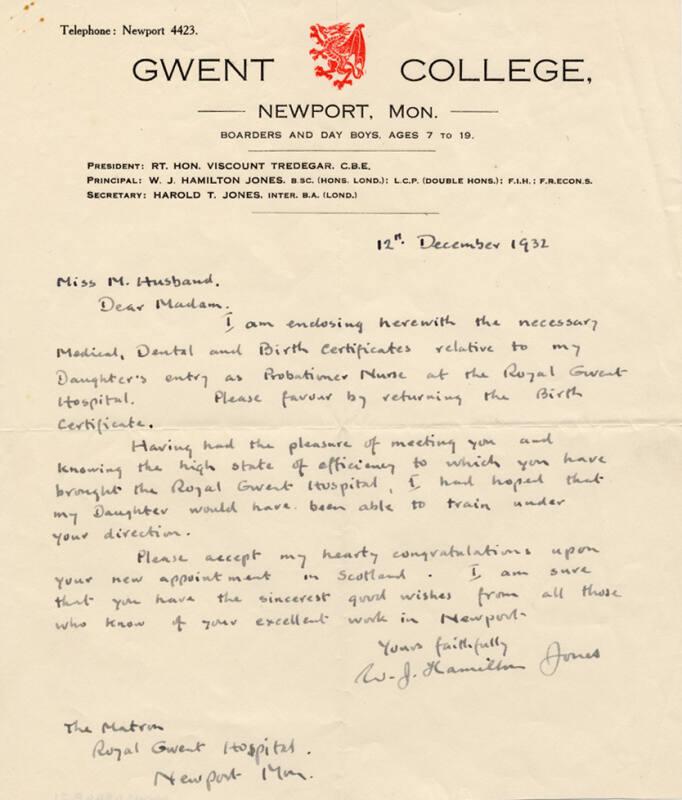 Telephone: Newport 4423.
GWENT COLLEGE,
NEWPORT, MON.
BOARDERS AND DAY BOYS, AGES 7 TO 19.
PRESIDENT: RT. HON. VISCOUNT TREDEGAR, C.B.E.
PRINCIPAL: W. J. HAMILTON JONES, B.SC. (HONS. LOND.); L.C.P. (DOUBLE HONS.); F.I.H.; F.R.ECON.S.
SECRETARY: HAROLD T. JONES, INTER. B.A. (LOND.)
12th. December 1932
Miss M. Husband.
Dear Madam.
I am enclosing herewith the necessary
Medical, Dental and Birth Certificates relative to my
Daughter's entry as Probationer Nurse at the Royal Gwent
Hospital. Please favour by returning the Birth
Certificate.
Having had the pleasure of meeting you and
knowing the high state of efficiency to which you have
brought the Royal Gwent Hospital, I had hoped that
my Daughter would have been able to train under
your direction.
Please accept my hearty congratulations upon
your new appointment in Scotland. I am sure
that you have the sincerest good wishes from all those
who know of your excellent work in Newport.
Yours faithfully
W. J. Hamilton Jones
The Matron
Royal Gwent Hospital.
Newport Mon.